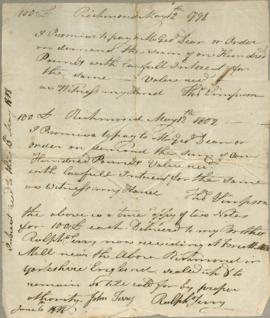 100 £ Richmond May 12th 1798
I Promise to pay to Mr Geo Dear or Order
on demand the sum of one Hundred
Pounds with Lawfull Interest for
the same Value recd
as Witness my Hand Thos Simpson
100 £ Richmond May 12th 1802
I Promise to pay to Mr Geo Dear or
order on demand the Sum of One
Hundred Pounds Value recd
with Lawfull Interest for the same
as Witness my Hand Thos Simpson
the above is a true Copy of two Notes
for 100 £ each Delivered to my Brother
Ralph Terry now residing at
Mill near the Above Richmond in
Yorkshire England
remain so till call for by proper
Athority John Terry Ralph Terry
June 6
Interest recd to the